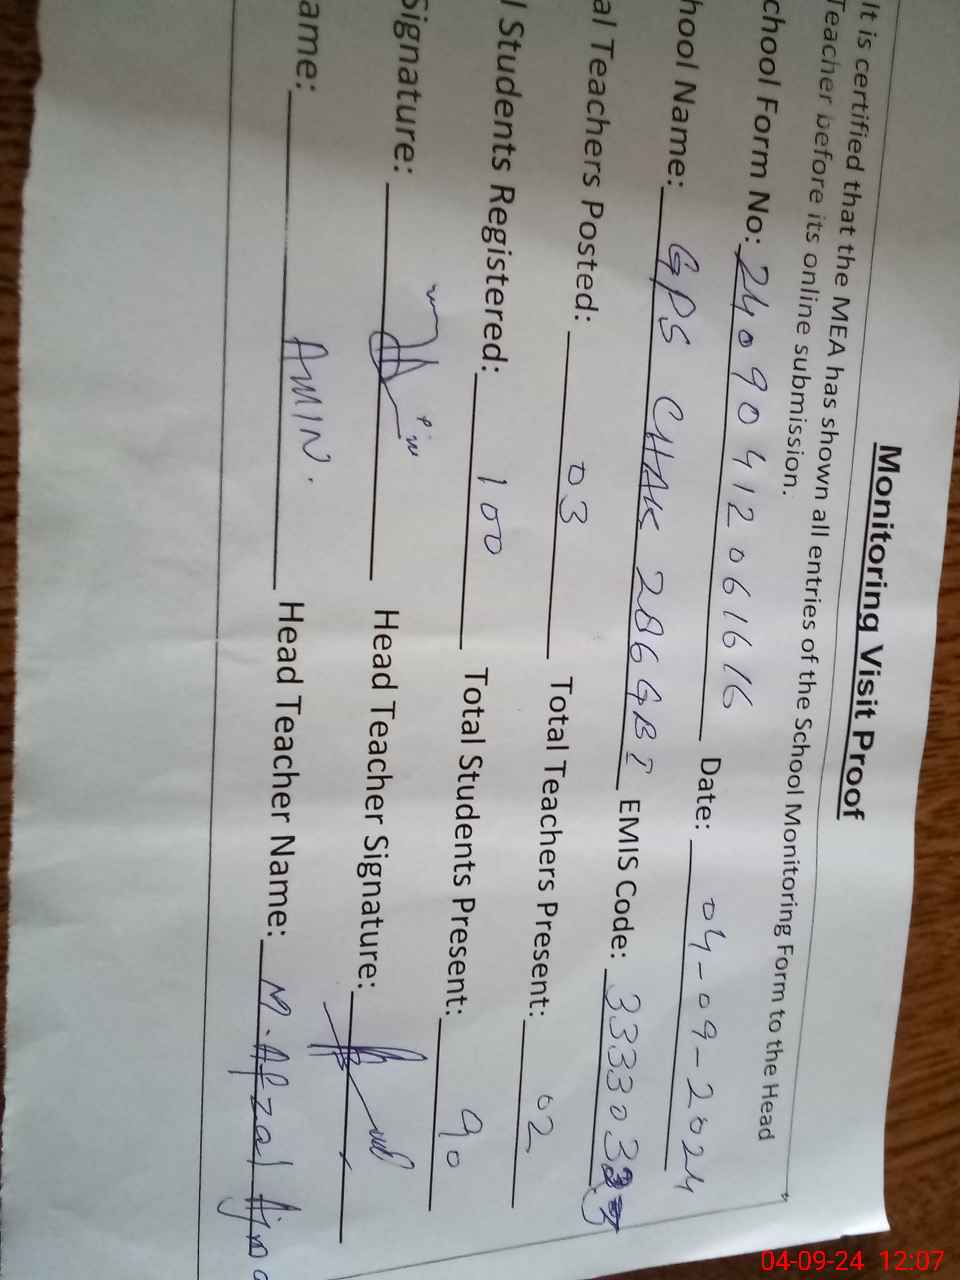 Monitoring Visit Proof
It is certified that the MEA has shown all entries of the School Monitoring Form to the Head
Teacher before its online submission.
chool Form No: 24090412061616 Date: 04-09-2024
hool Name: GPS CHAK 286 GB I EMIS Code: 333303
al Teachers Posted: 03 Total Teachers Present: 02
l Students Registered: 100 Total Students Present: 90
Signature: Head Teacher Signature:
ame: AMIN. Head Teacher Name: M. Afzal
04-09-24 12:07